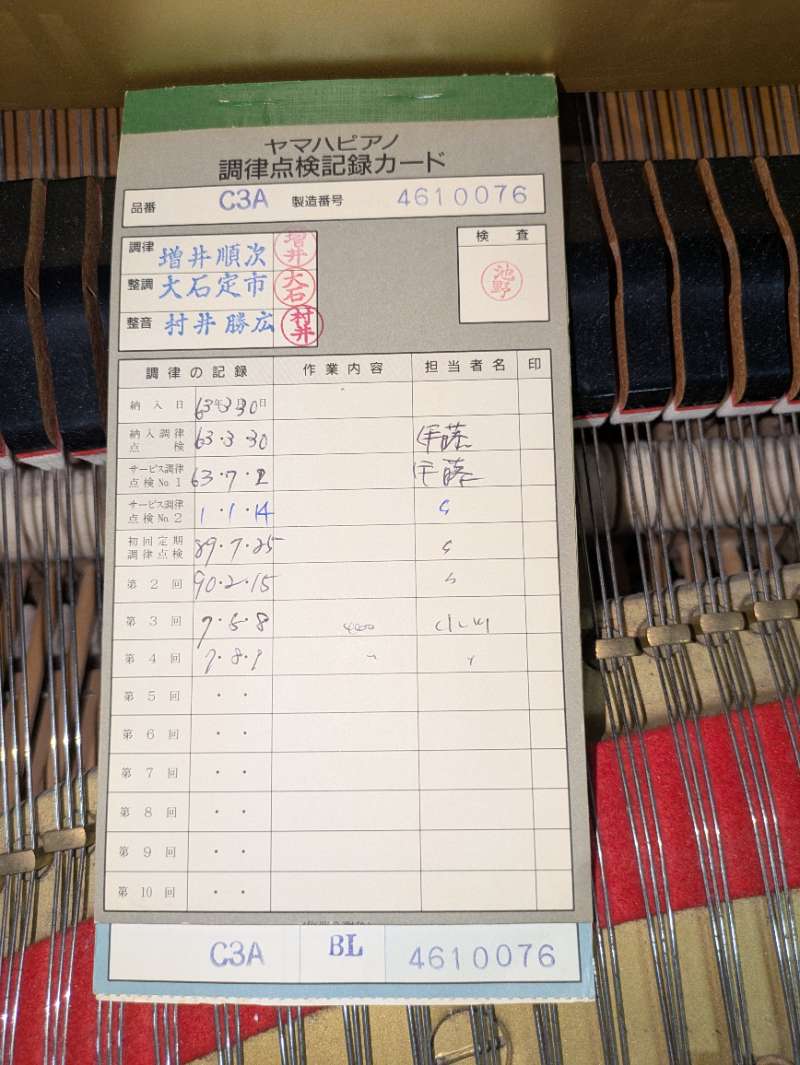 ヤマハピアノ
調律点検記録カード
品番 C3A 製造番号 4610076
調律 増井順次 増井
整調 大石定市 大石
整音 村井勝広 村井
検査
池野
調律の記録 作業内容 担当者名 印
納入日 63年3月30日
納入調律点検 63・3・30 伊藤
サービス調律点検No.1 63・7・2 伊藤
サービス調律点検No.2 1・1・14 〃
初回定期調律点検 89・7・25 〃
第2回 90・2・15 〃
第3回 7・6・8
第4回 7・8・9 〃 〃
第5回 ・ ・
第6回 ・ ・
第7回 ・ ・
第8回 ・ ・
第9回 ・ ・
第10回 ・ ・
C3A BL 4610076